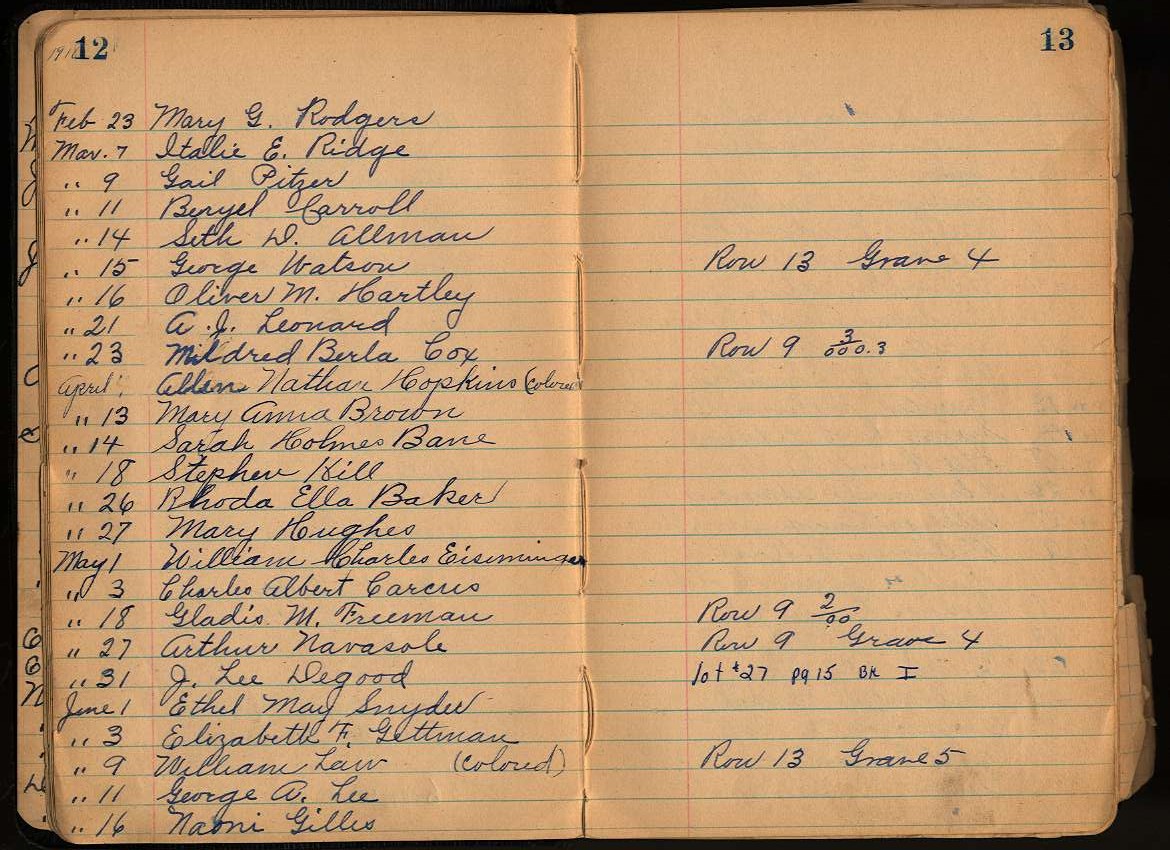 12
13
Feb 23 Mary G. Rodgers
Mar. 7 Italie E. Ridge
" 9 Gail Pitzer
" 11 Beryel Carroll
" 14 Seth D. Allman
" 15 George Watson Row 13 Grave 4
" 16 Oliver M. Hartley
" 21 A. J. Leonard
" 23 Mildred Berla Cox Row 9 3
April Nathan Hopkins (colored
" 13 Mary Anna Brown
" 14 Sarah Holmes Bane
" 18 Stephen Hill
" 26 Rhoda Ella Baker
" 27 Mary Hughes
May 1 William Charles Eisminger
" 3 Charles Albert Carcus
" 18 Gladis M. Freeman Row 9 2/00
" 27 Arthur Navasole Row 9 Grave 4
" 31 J. Lee Degood lot #27 pg 15 BK I
June 1 Ethel May Snyder
" 3 Elizabeth F. Gettman
" 9 William Law (colored) Row 13 Grave 5
" 11 George A. Lee
" 16 Naoni Gilles